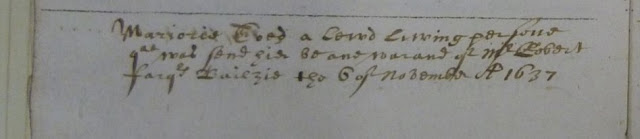 Marjorie Toed a lewd Living persone
qa was send hier be ane warand of Mr Robert
farqr Bailzie the 6 of November Ao 1637